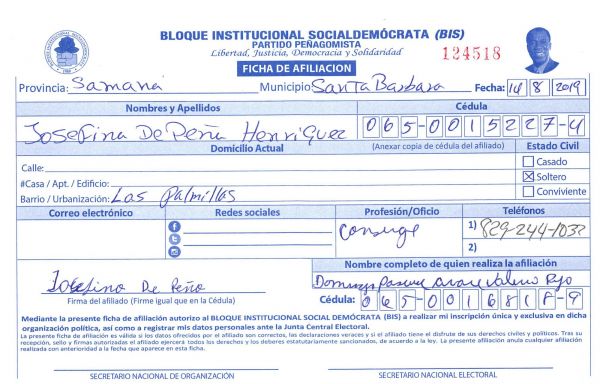 BLOQUE INSTITUCIONAL SOCIALDEMÓCRATA (BIS)
PARTIDO PEÑAGOMISTA
Libertad, Justicia, Democracia y Solidaridad
124518
FICHA DE AFILIACION
Provincia: Samaná Municipio Santa Barbara Fecha: 14 8 2019
Nombres y Apellidos Cédula
Josefina De Peña Henriquez 065-0015227-4
Domicilio Actual (Anexar copia de cédula del afiliado) Estado Civil
Calle: Casado
#Casa / Apt. / Edificio: Soltero
Barrio / Urbanización: Las Palmillas Conviviente
Correo electrónico Redes sociales Profesión/Oficio Teléfonos
Conserge 1) 829-244-1032
2)
Nombre completo de quien realiza la afiliación
Josefina De Peña
Firma del afiliado (Firme igual que en la Cédula) Cédula: 065-0016818-9
Mediante la presente ficha de afiliación autorizo al BLOQUE INSTITUCIONAL SOCIAL DEMÓCRATA (BIS) a realizar mi inscripción única y exclusiva en dicha
organización política, así como a registrar mis datos personales ante la Junta Central Electoral.
La presente ficha de afiliación es válida si los datos ofrecidos por el afiliado son correctos, las declaraciones veraces y si el afiliado tiene el disfrute de sus derechos civiles y políticos. Tras su
recepción, sello y firmas autorizadas el afiliado ejercerá todos los derechos y los deberes estatutariamente sancionados, de acuerdo a la ley. La presente afiliación anula cualquier afiliación
realizada con anterioridad a la fecha que aparece en esta ficha.
SECRETARIO NACIONAL DE ORGANIZACIÓN SECRETARIO NACIONAL ELECTORAL